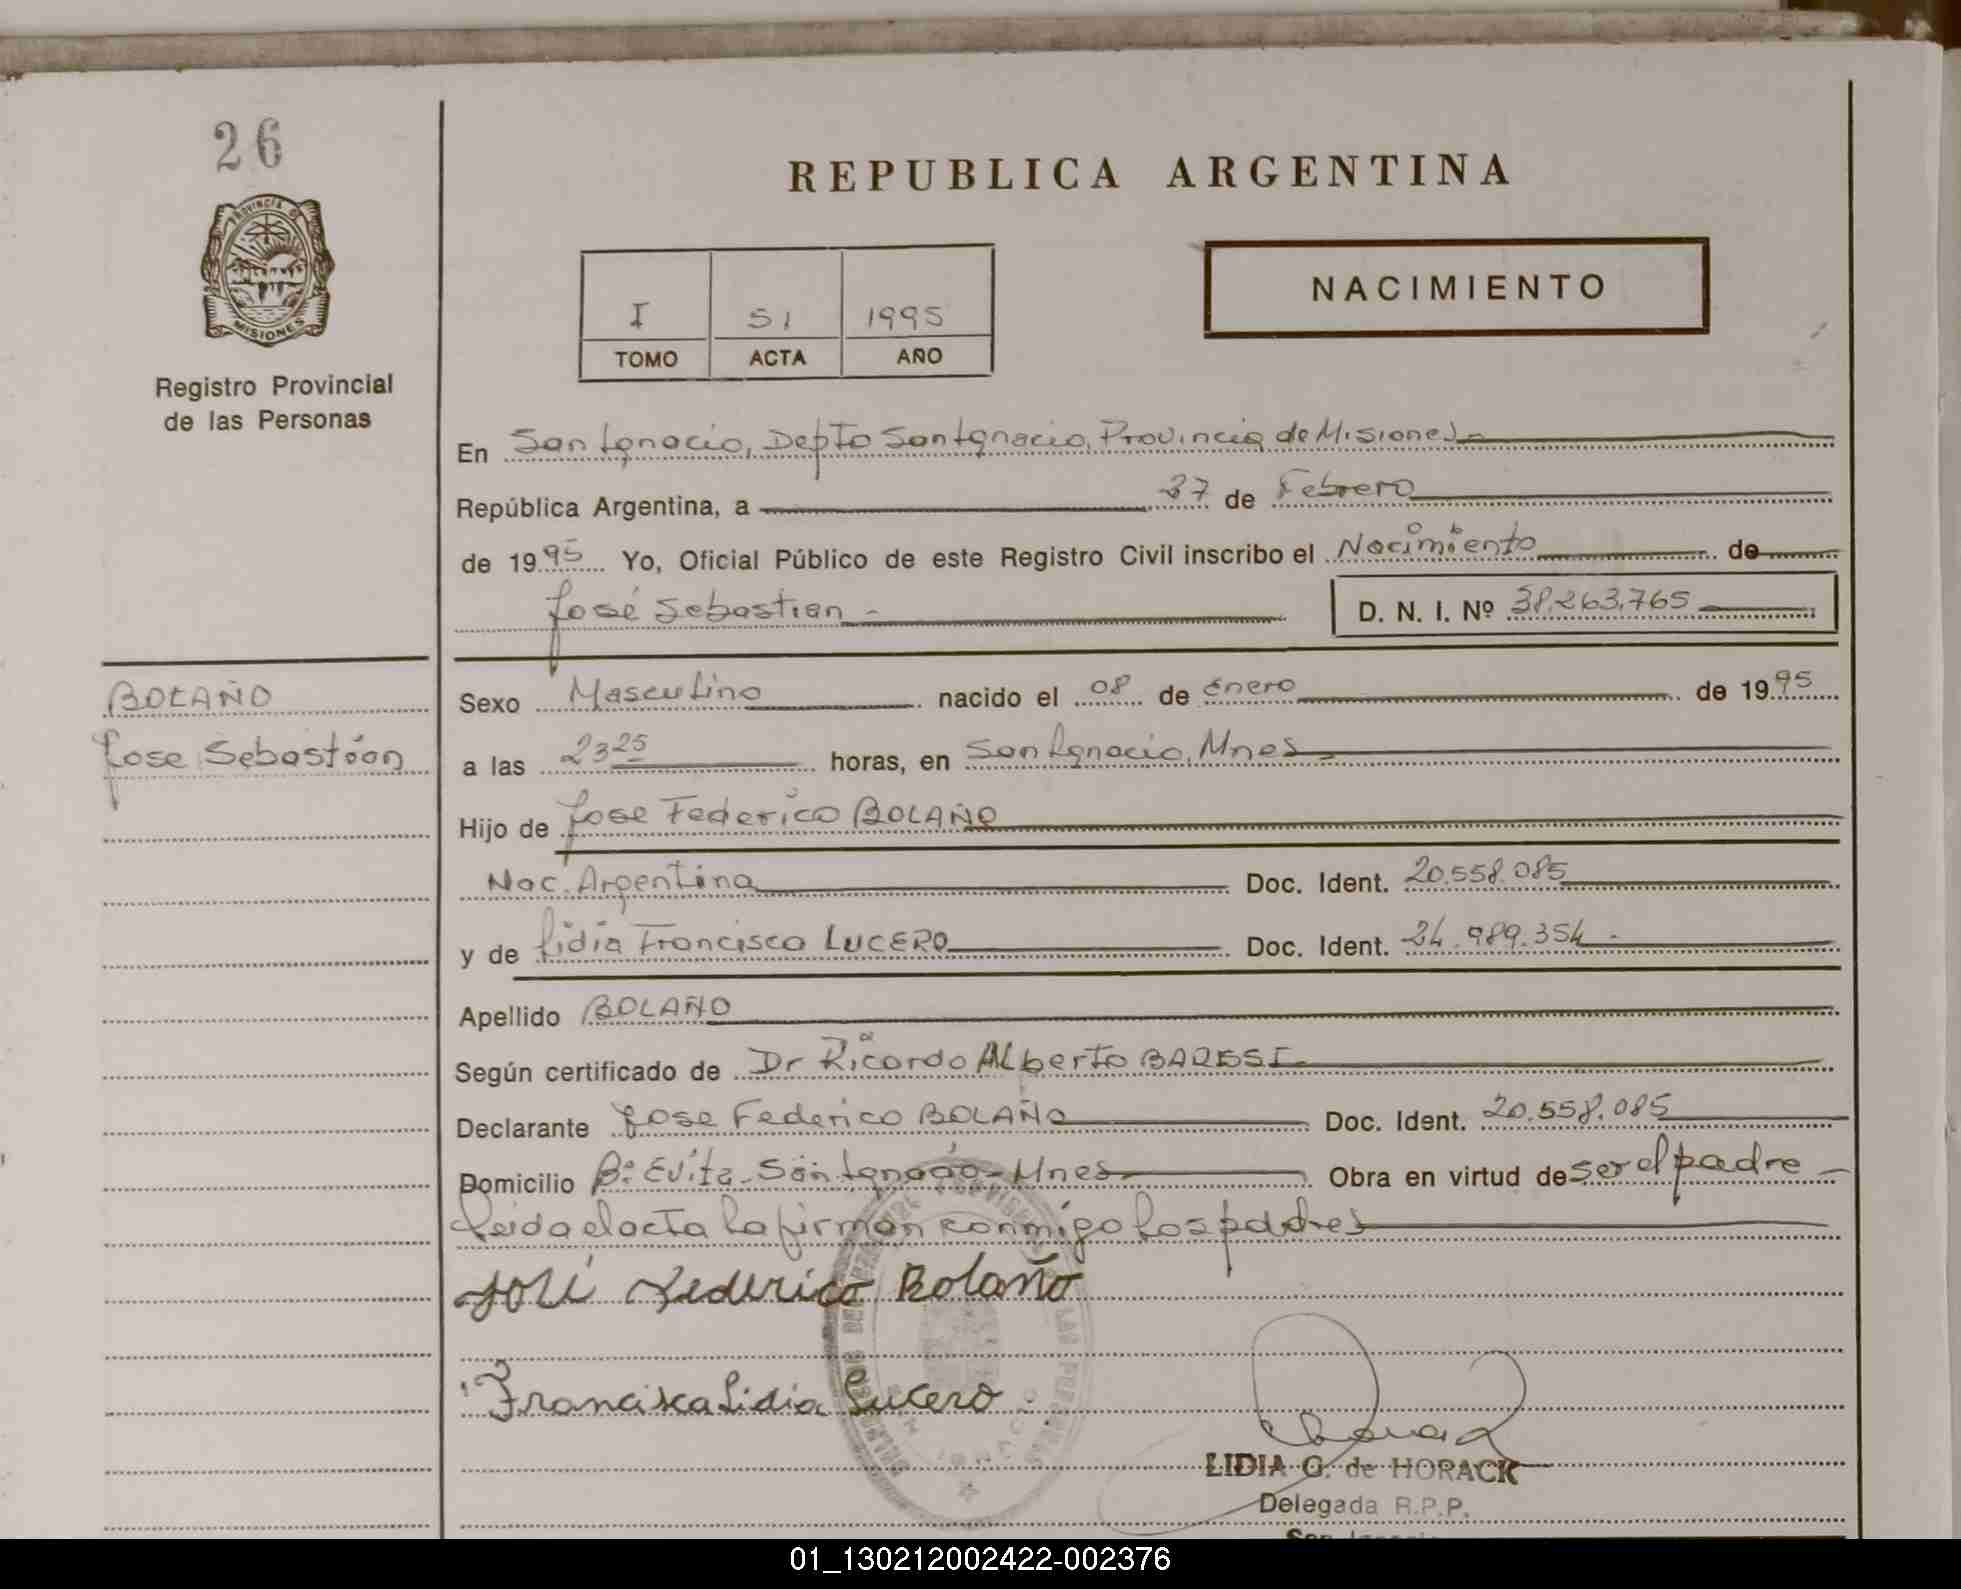 26
PROVINCIA DE
MISIONES
Registro Provincial
de las Personas
REPUBLICA ARGENTINA
I 51 1995
TOMO ACTA AÑO
NACIMIENTO
En San Ignacio, Depto San Ignacio, Provincia de Misiones-
República Argentina, a 27 de Febrero
de 1995 Yo, Oficial Público de este Registro Civil inscribo el Nacimiento de
José Sebastian - D. N. I. Nº 38.263.765
BOLAÑO
Jose Sebastian
Sexo Masculino nacido el 08 de Enero de 1995
a las 23 25 horas, en San Ignacio, Mnes-
Hijo de Jose Federico BOLAÑO
Nac. Argentina Doc. Ident. 20.558.085
y de Lidia Francisca LUCERO Doc. Ident. 24.989.354 -
Apellido BOLAÑO
Según certificado de Dr Ricardo Alberto BARESSI-
Declarante Jose Federico BOLAÑO Doc. Ident. 20.558.085
Domicilio Bº Evita - San Ignacio - Mnes- Obra en virtud de ser el padre -
Leida el acta la firman conmigo los padres
José Federico Bolaño
Francisca Lidia Lucero
LIDIA G. de HORACK
Delegada R.P.P.
01_130212002422-002376